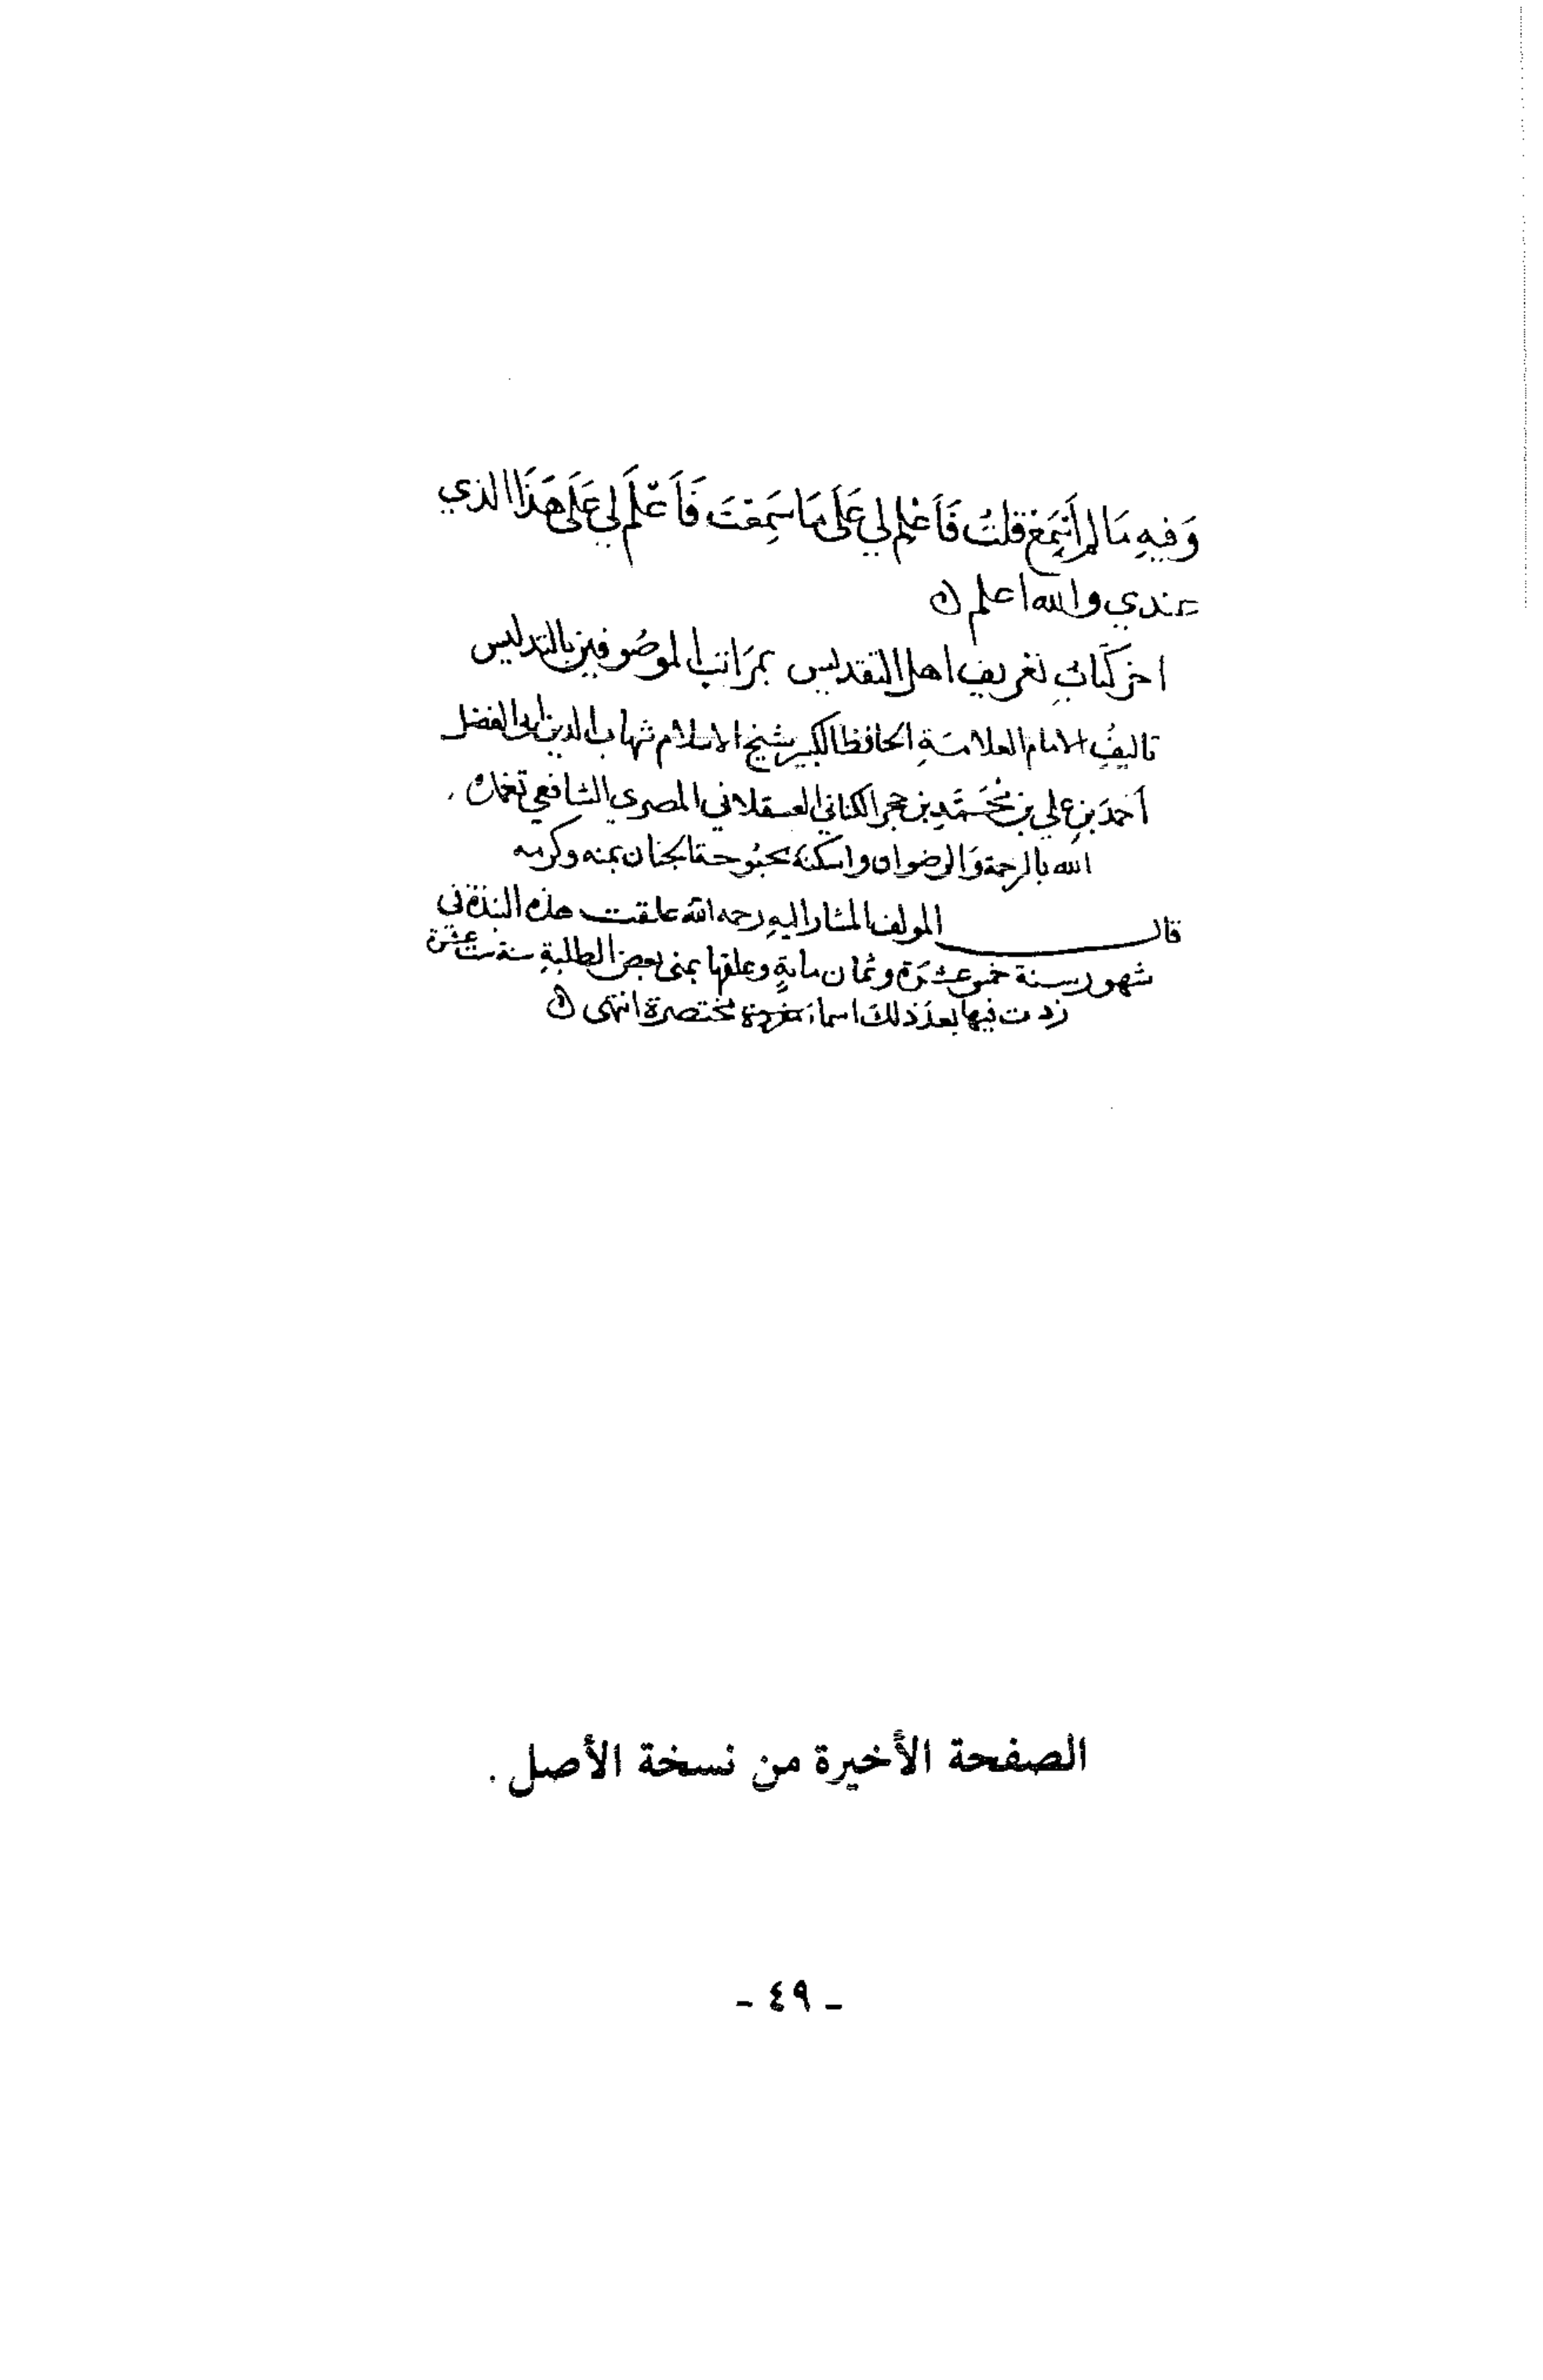 وَفيهِ مَا لم أَسْمَعْ قلتُ فَأَعْلِم لي عَلَى مَا سَمِعْتَ فَأَعْلَمَ لي عَلَى هَذَا الذي
عندي والله اعلم
اخر كتاب تعريف اهل التقديس بمرَاتب الموصُوفين بالتدليس
تاليفُ الامام العلامَة الحافظ الكبير شيخ الاسلام شهاب الدين ابي الفضل
أحمدَ بن علي بن مُحَمَّدِ بن حجر الكناني العسقلاني المصري الشافعي تغمده
الله بالرحمة وَالرضوان واسكنه بحبُوحة الجنان بمنه وكرمه
قال المولف المشار اليهِ رحمه الله علقت هذه النبذة في
شهور سنة خمس عشرَة وثمان مايةٍ وعلقها بمنى بعض الطلبةِ سنة ست عشرة
زدت فيها بعدَ ذلك اسماءَ مختصرة انتهى
الصفحة الأخيرة من نسخة الأصل .
- ٤٩ -